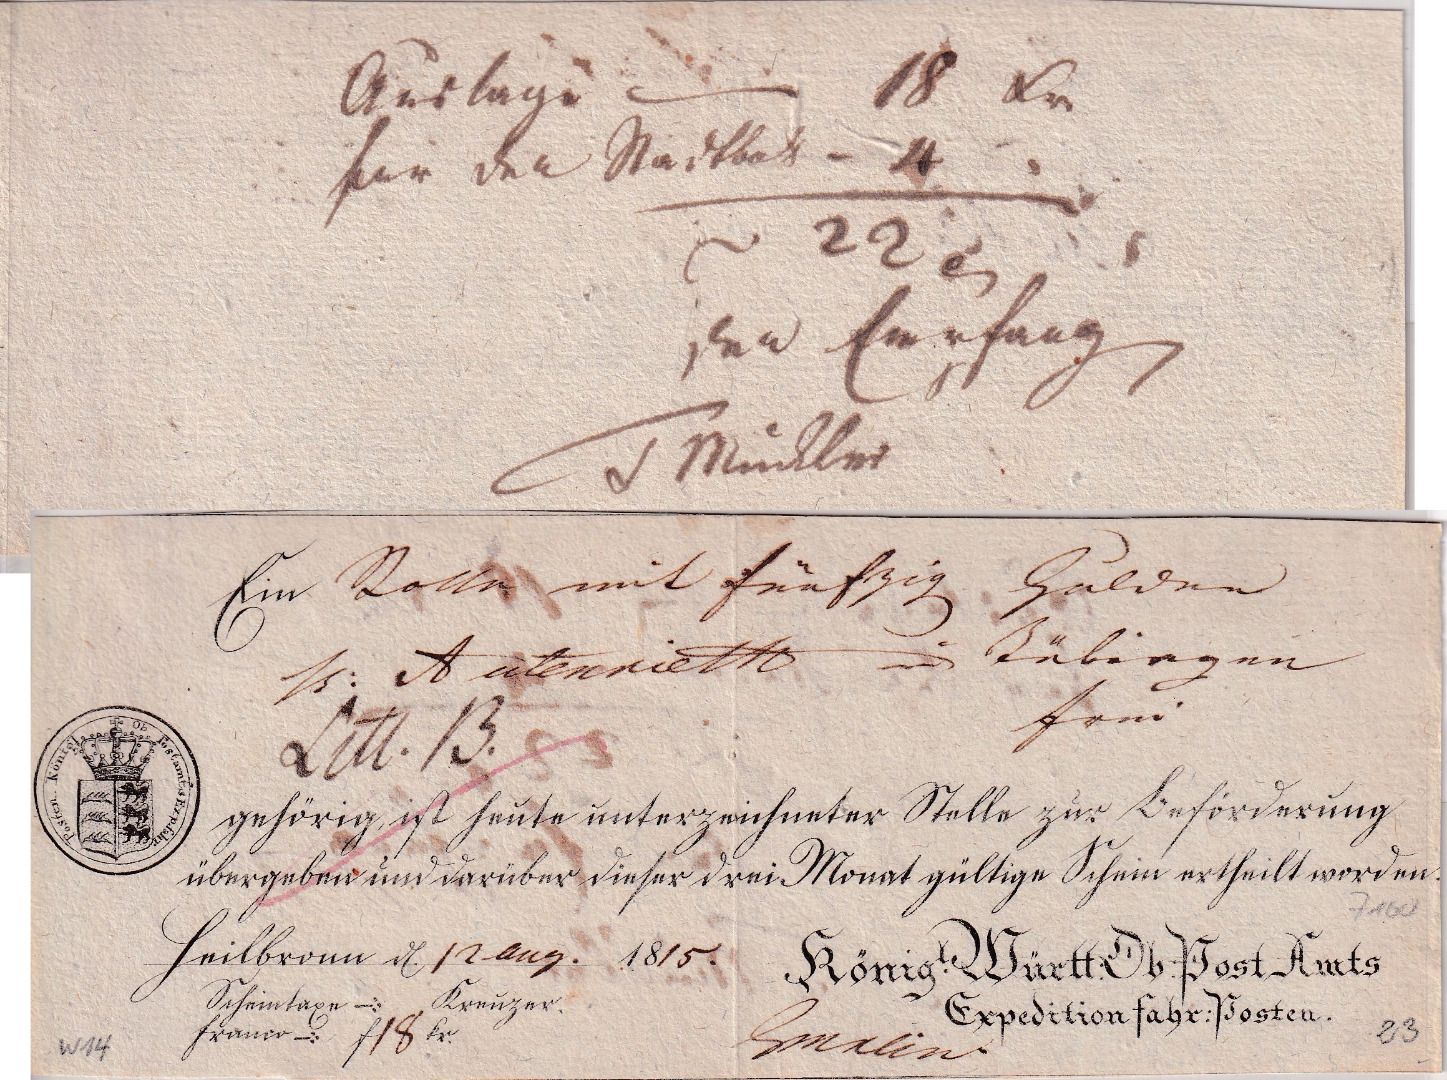 Auslage — 18 Kr
für den Stadtbott - 4
22
den Empfang
Ein Rolle mit fünfzig Gulden
Autenrieth in Tübingen
frei
Litt. B.
Posten Königl. Ob Postamts Exp. fahr
gehörig, ist heute unterzeichneter Stelle zur Beförderung
übergeben und darüber dieser drei Monat gültige Schein ertheilt worden.
Heilbronn d. 12 Aug. 1815.
Königl. Württ: Ob Post Amts
Scheintaxe —: Kreuzer.
Expedition fahr: Posten.
franco —: f 18 kr.
Gmelin.
7160
W14
23